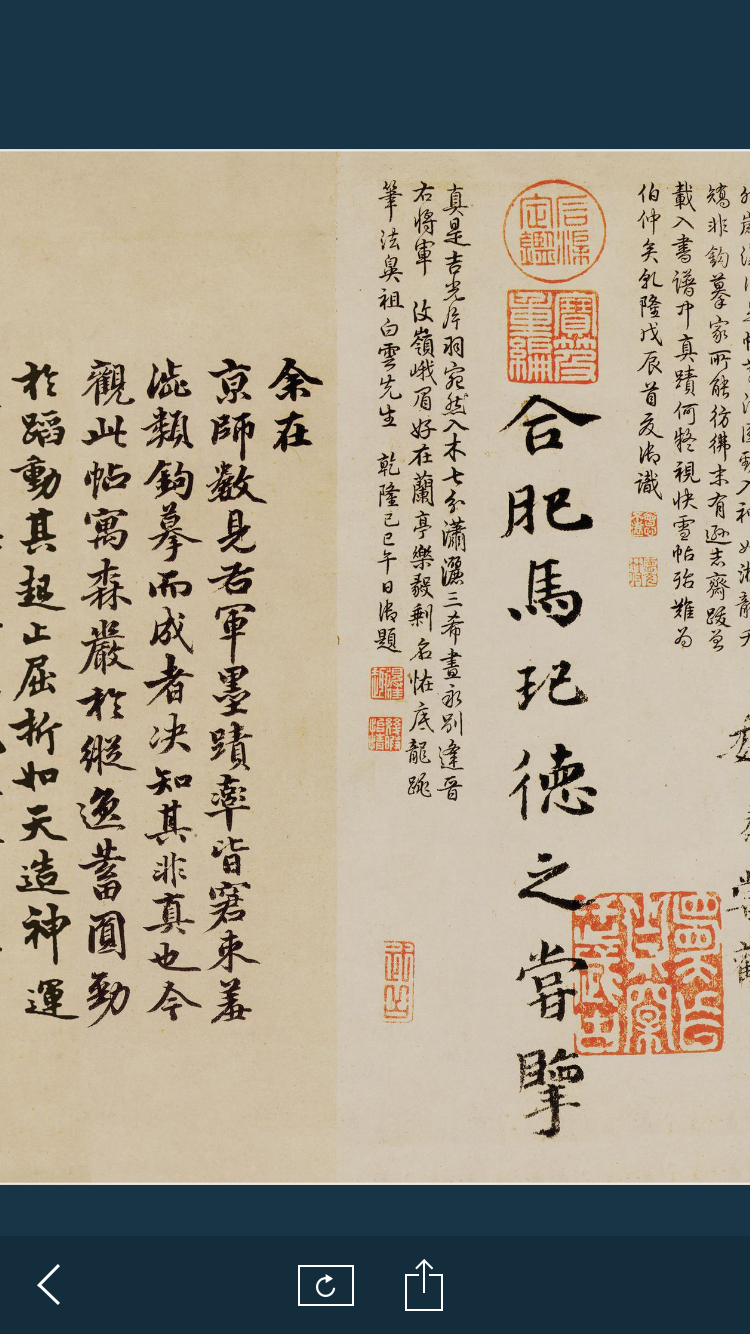 非鈎摹家所能彷彿末有遜志齋跋曾
載入書譜中真蹟何疑視快雪帖殆難為
伯仲矣乾隆戊辰首夏御識
石渠定鑑
寶笈重編
合肥馬玘德之嘗擥
真是吉光片羽宛然入木七分瀟灑三希晝永別逢晉
右將軍 汶嶺峨眉好在蘭亭樂毅剩名恠底龍跳
筆法鼻祖白雲先生 乾隆己巳午日御題
余在
京師數見右軍墨蹟率皆窘束羞
澁類鉤摹而成者決知其非真也今
觀此帖寓森嚴於縱逸蓄圓勁
於蹈動其趨止屈折如天造神運